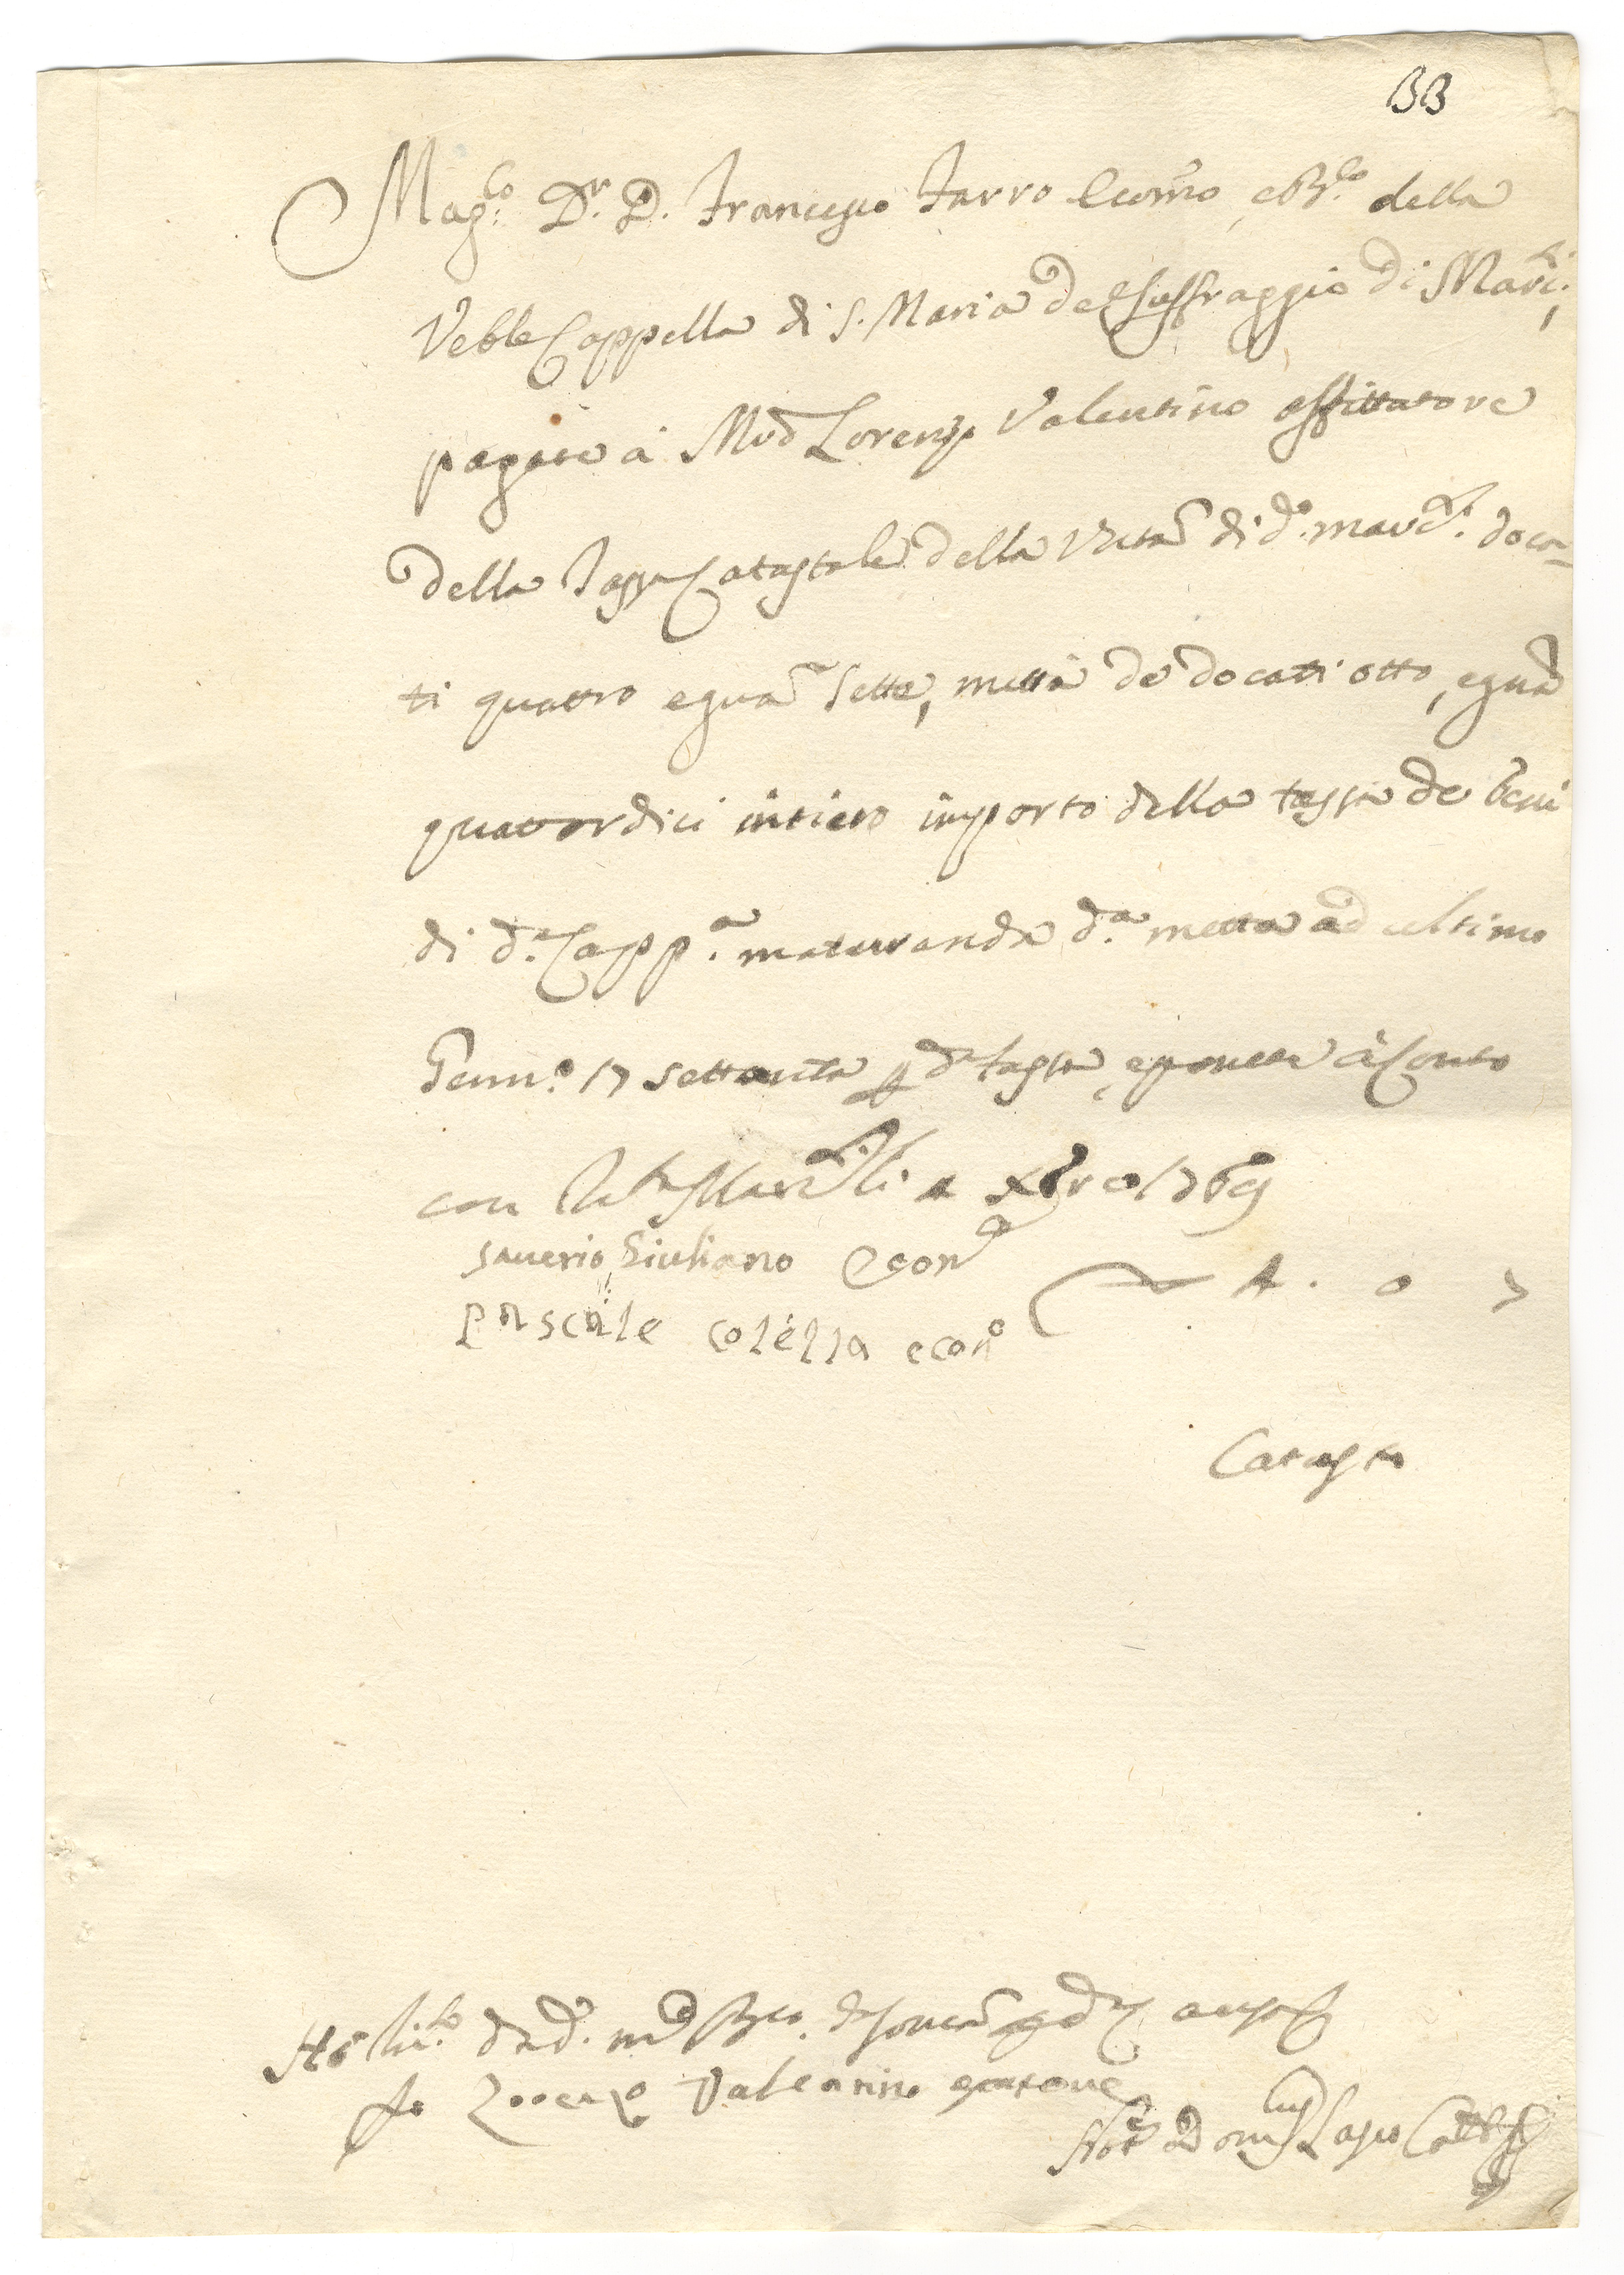 33
Mag.co Dr. D. Francesco Farro Econ.o, e della
Veble Cappella di S. Maria del Suffraggio di
pagate à Lorenzo Valentino affittatore
della Tassa Catastale della di d.o doca=
ti quattro e gra sette, mettà de docati otto, e gra
quattordici intiero importo della tassa de beni
di d.a Capp.a maturanda d.a metta ad ultimo
Genn.o 17 settanta d.a tassa, e ponete à Conto
con xbre 1769
saverio Giuliano Econ.o
pascale colella econ.o 4. 0 7
Catasto
Ho
Io Lorenzo Valentino
Not.r Dom.co